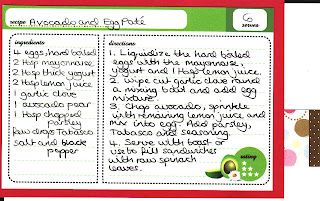 recipe Avocado and Egg Paté
6
serves
ingredients
4 eggs, hard boiled
2 tbsp mayonnaise
2 tbsp thick yogurt
2 tbsp lemon juice
1 garlic clove
1 avocado pear
1 tbsp chopped
parsley
few drops Tabasco
salt and black
pepper
directions
1. Liquidize the hard boiled
eggs with the mayonnaise,
yogurt and 1 tbsp lemon juice.
2. Wipe cut garlic clove round
a mixing bowl and add egg
mixture.
3. Chop avocado, sprinkle
with remaining lemon juice and
mix into egg. Add parsley,
Tabasco and seasoning.
4. Serve with toast or
use to fill sandwiches
with raw spinach
leaves.
rating